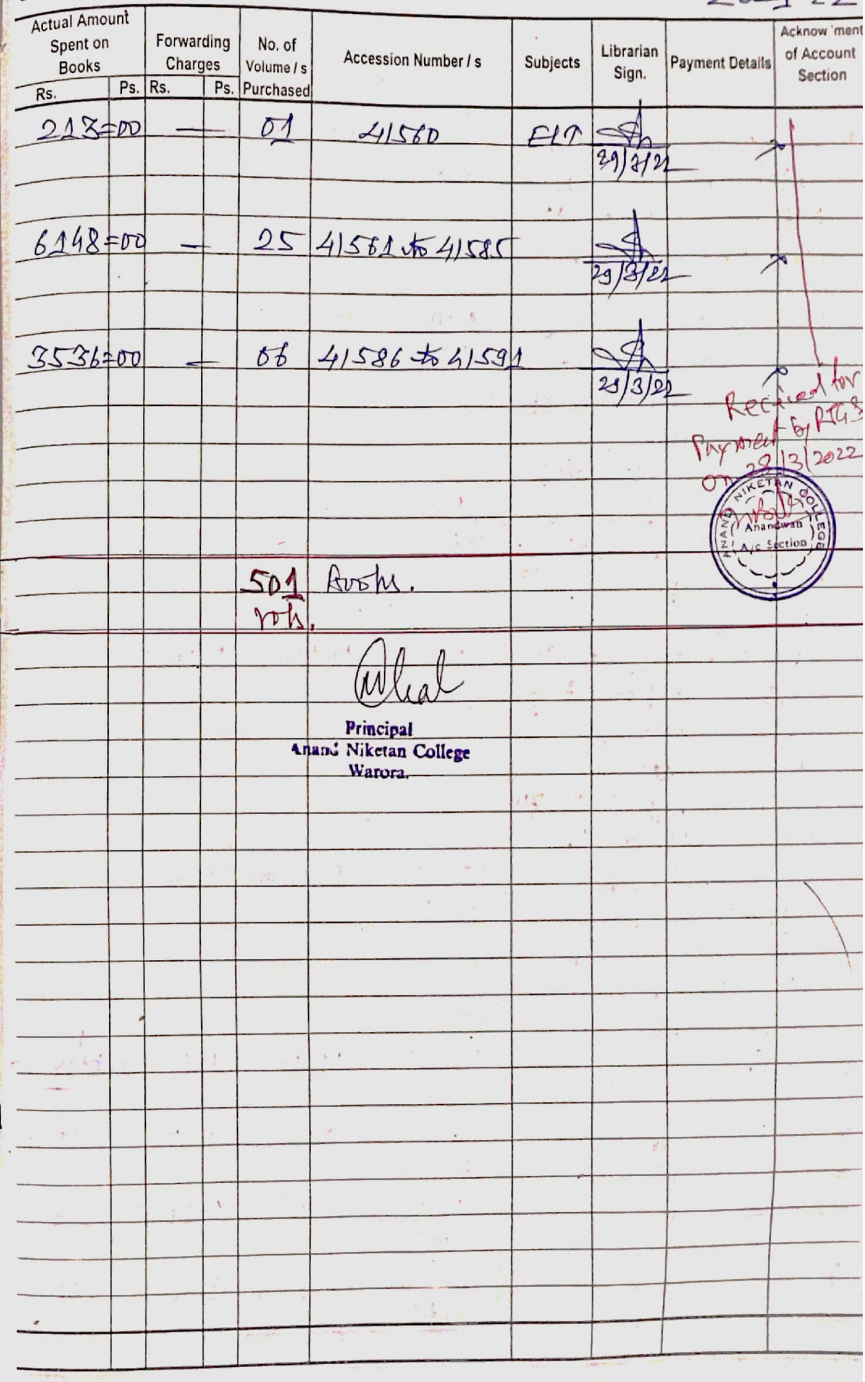 2021-22
Actual Amount Spent on Books Rs. Ps.
Forwarding Charges Rs. Ps.
No. of Volume / s Purchased
Accession Number / s
Subjects
Librarian Sign.
Payment Details
Acknow'ment of Account Section
213=00 — 01 41560 ELT
29/3/22
6148=00 — 25 41561 to 41585
29/3/22
3536=00 — 06 41586 to 41591
29/3/22
Received for
Payment by RTGS
on 29/3/2022
ANAND NIKETAN COLLEGE
Anandwan
A/c Section
501
vols.
Principal
Anand Niketan College
Warora.